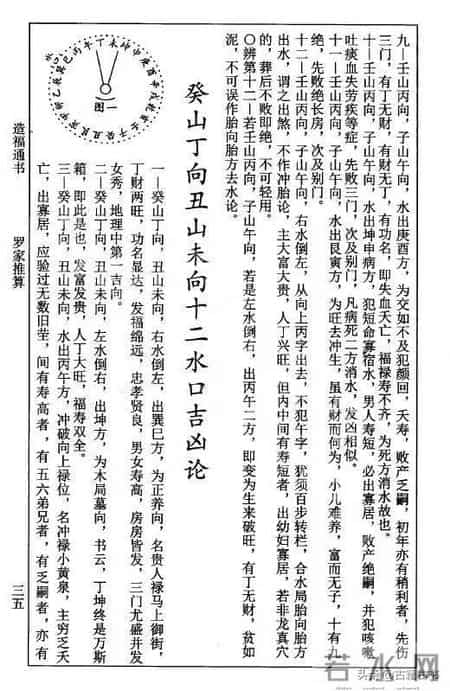 九—壬山丙向，子山午向，水出庚酉方，为交如不及犯颜回，夭寿，败产乏嗣，初年亦有稍利者，先伤
三门，有丁无财，有财无丁，有功名，即失血夭亡，福禄寿不齐，为死方消水故也。
十—壬山丙向，子山午向，水出坤申病方，犯短命寡宿水，男人寿短，必出寡居，败产绝嗣，并犯咳嗽
吐痰血失劳疾等症，先败三门，次及别门，凡病死二方消水，发凶相似。
十一—壬山丙向，子山午向，水出艮寅方，为旺去冲生，虽有财而何为，小儿难养，富而无子，十有九
绝，先败绝长房，次及别门。
十二—壬山丙向，子山午向，右水倒左，从向上丙字出去，不犯午字，犹须百步转栏，合水局胎向胎方
出水，谓之出煞，不作冲胎论，主大富大贵，人丁兴旺，但内中间有寿短者，出幼妇寡居，若非龙真穴
的，葬后不败即绝，不可轻用。
〇辨第十二—若壬山丙向，子山午向，若是左水倒右，出丙午二方，即变为生来破旺，有丁无财，贫如
泥，不可误作胎向胎方去水论。
癸山丁向丑山未向十二水口吉凶论
图一
一—癸山丁向，丑山未向，右水倒左，出巽巳方，为正养向，名贵人禄马上御街，
丁财两旺，功名显达，发福绵远，忠孝贤良，男女寿高，房房皆发，三门尤盛并发
女秀，地理中第一吉向。
二—癸山丁向，丑山未向，左水倒右，出坤方，为木局墓向，书云，丁坤终是万斯
箱，即此是也，发富发贵，人丁大旺，福寿双全。
三—癸山丁向，丑山未向，水出丙午方，冲破向上禄位，名冲禄小黄泉，主穷乏夭
亡，出寡居，应验过无数旧茔，间有寿高者，有五六弟兄者，有乏嗣者，亦有
造福通书
罗家推算
三五
若水网